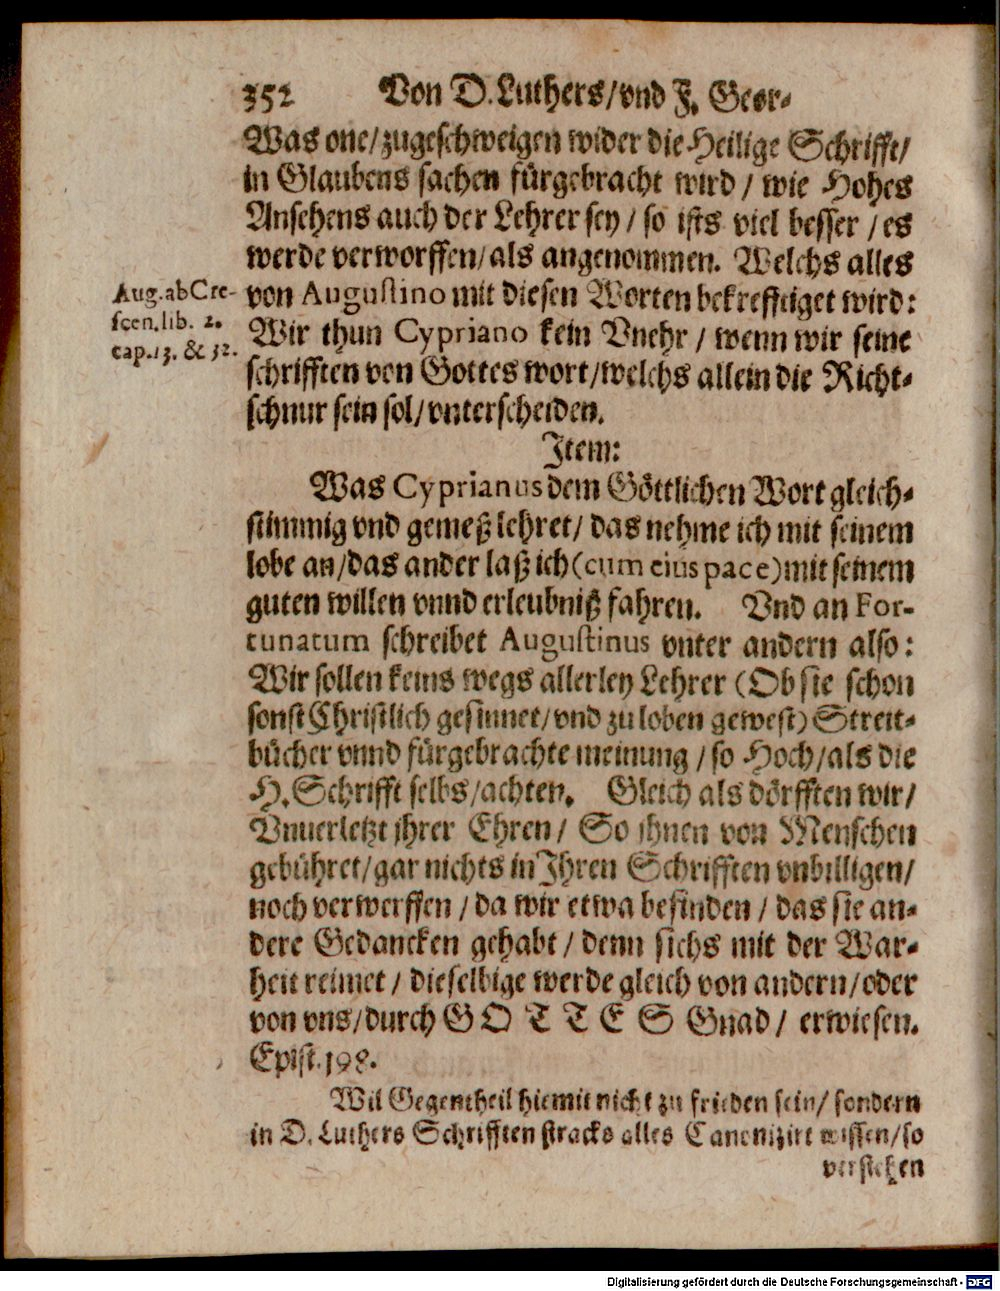 352 Von D. Luthers/vnd F. Geor-
Was one/zugeschweigen wider die Heilige Schrifft/
in Glaubens sachen fürgebracht wird / wie Hohes
Ansehens auch der Lehrer sey / so ists viel besser / es
werde verworffen/als angenommen. Welchs alles
von Augustino mit diesen Worten bekrefftiget wird:
Wir thun Cypriano kein Vnehr / wenn wir seine
schrifften von Gottes wort/welchs allein die Richt-
schnur sein sol/vnterscheiden.
Aug. ab Cre-
scen. lib. 2.
cap. 13. & 32.
Item:
Was Cyprianus dem Göttlichen Wort gleich-
stimmig vnd gemeß lehret/ das nehme ich mit seinem
lobe an/das ander laß ich (cum eius pace) mit seinem
guten willen vnnd erleubniß fahren. Vnd an For-
tunatum schreibet Augustinus vnter andern also:
Wir sollen keins wegs allerley Lehrer (Ob sie schon
sonst Christlich gesinnet/vnd zu loben gewest) Streit-
bücher vnnd fürgebrachte meinung / so Hoch/als die
H. Schrifft selbs/achten. Gleich als dörfften wir/
Vnuerletzt jhrer Ehren/ So jhnen von Menschen
gebühret/gar nichts in Jhren Schrifften vnbilligen/
noch verwerffen / da wir etwa befinden / das sie an-
dere Gedancken gehabt / denn sichs mit der War-
heit reimet / dieselbige werde gleich von andern/oder
von vns/durch GOTTES Gnad/ erwiesen.
Epist. 198.
Wil Gegentheil hiemit nicht zu frieden sein/ sondern
in D. Luthers Schrifften stracks alles Canonizirt wissen/so
verstehen
Digitalisierung gefördert durch die Deutsche Forschungsgemeinschaft - DFG